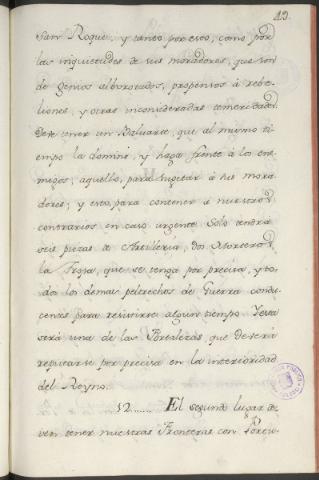 19.
San Roque, y tanto por esto, como por
las inquietudes de sus moradores, que son
de genios alborotados, propensos à rebe-
liones, y otras inconsideradas temeridades
Debe tener un Baluarte, que al mismo ti-
empo la domine, y haga frente à los ene-
migos, aquello, para sugetar à sus mora
dores; y esto, para contener à nuestros
contrarios en caso urgente. Solo tendrà
seis piezas de Artilleria, dos Morteros
la Tropa, que se tenga por precisa, y to-
dos los demas peltrechos de Guerra condu-
centes para resistirse algun tiempo
será una de las Fortalezas, que deberá
reputarse por precisa en la interioridad
del Reyno.
52....... El segundo lugar de
ven tener nuestras Fronteras con Portu-